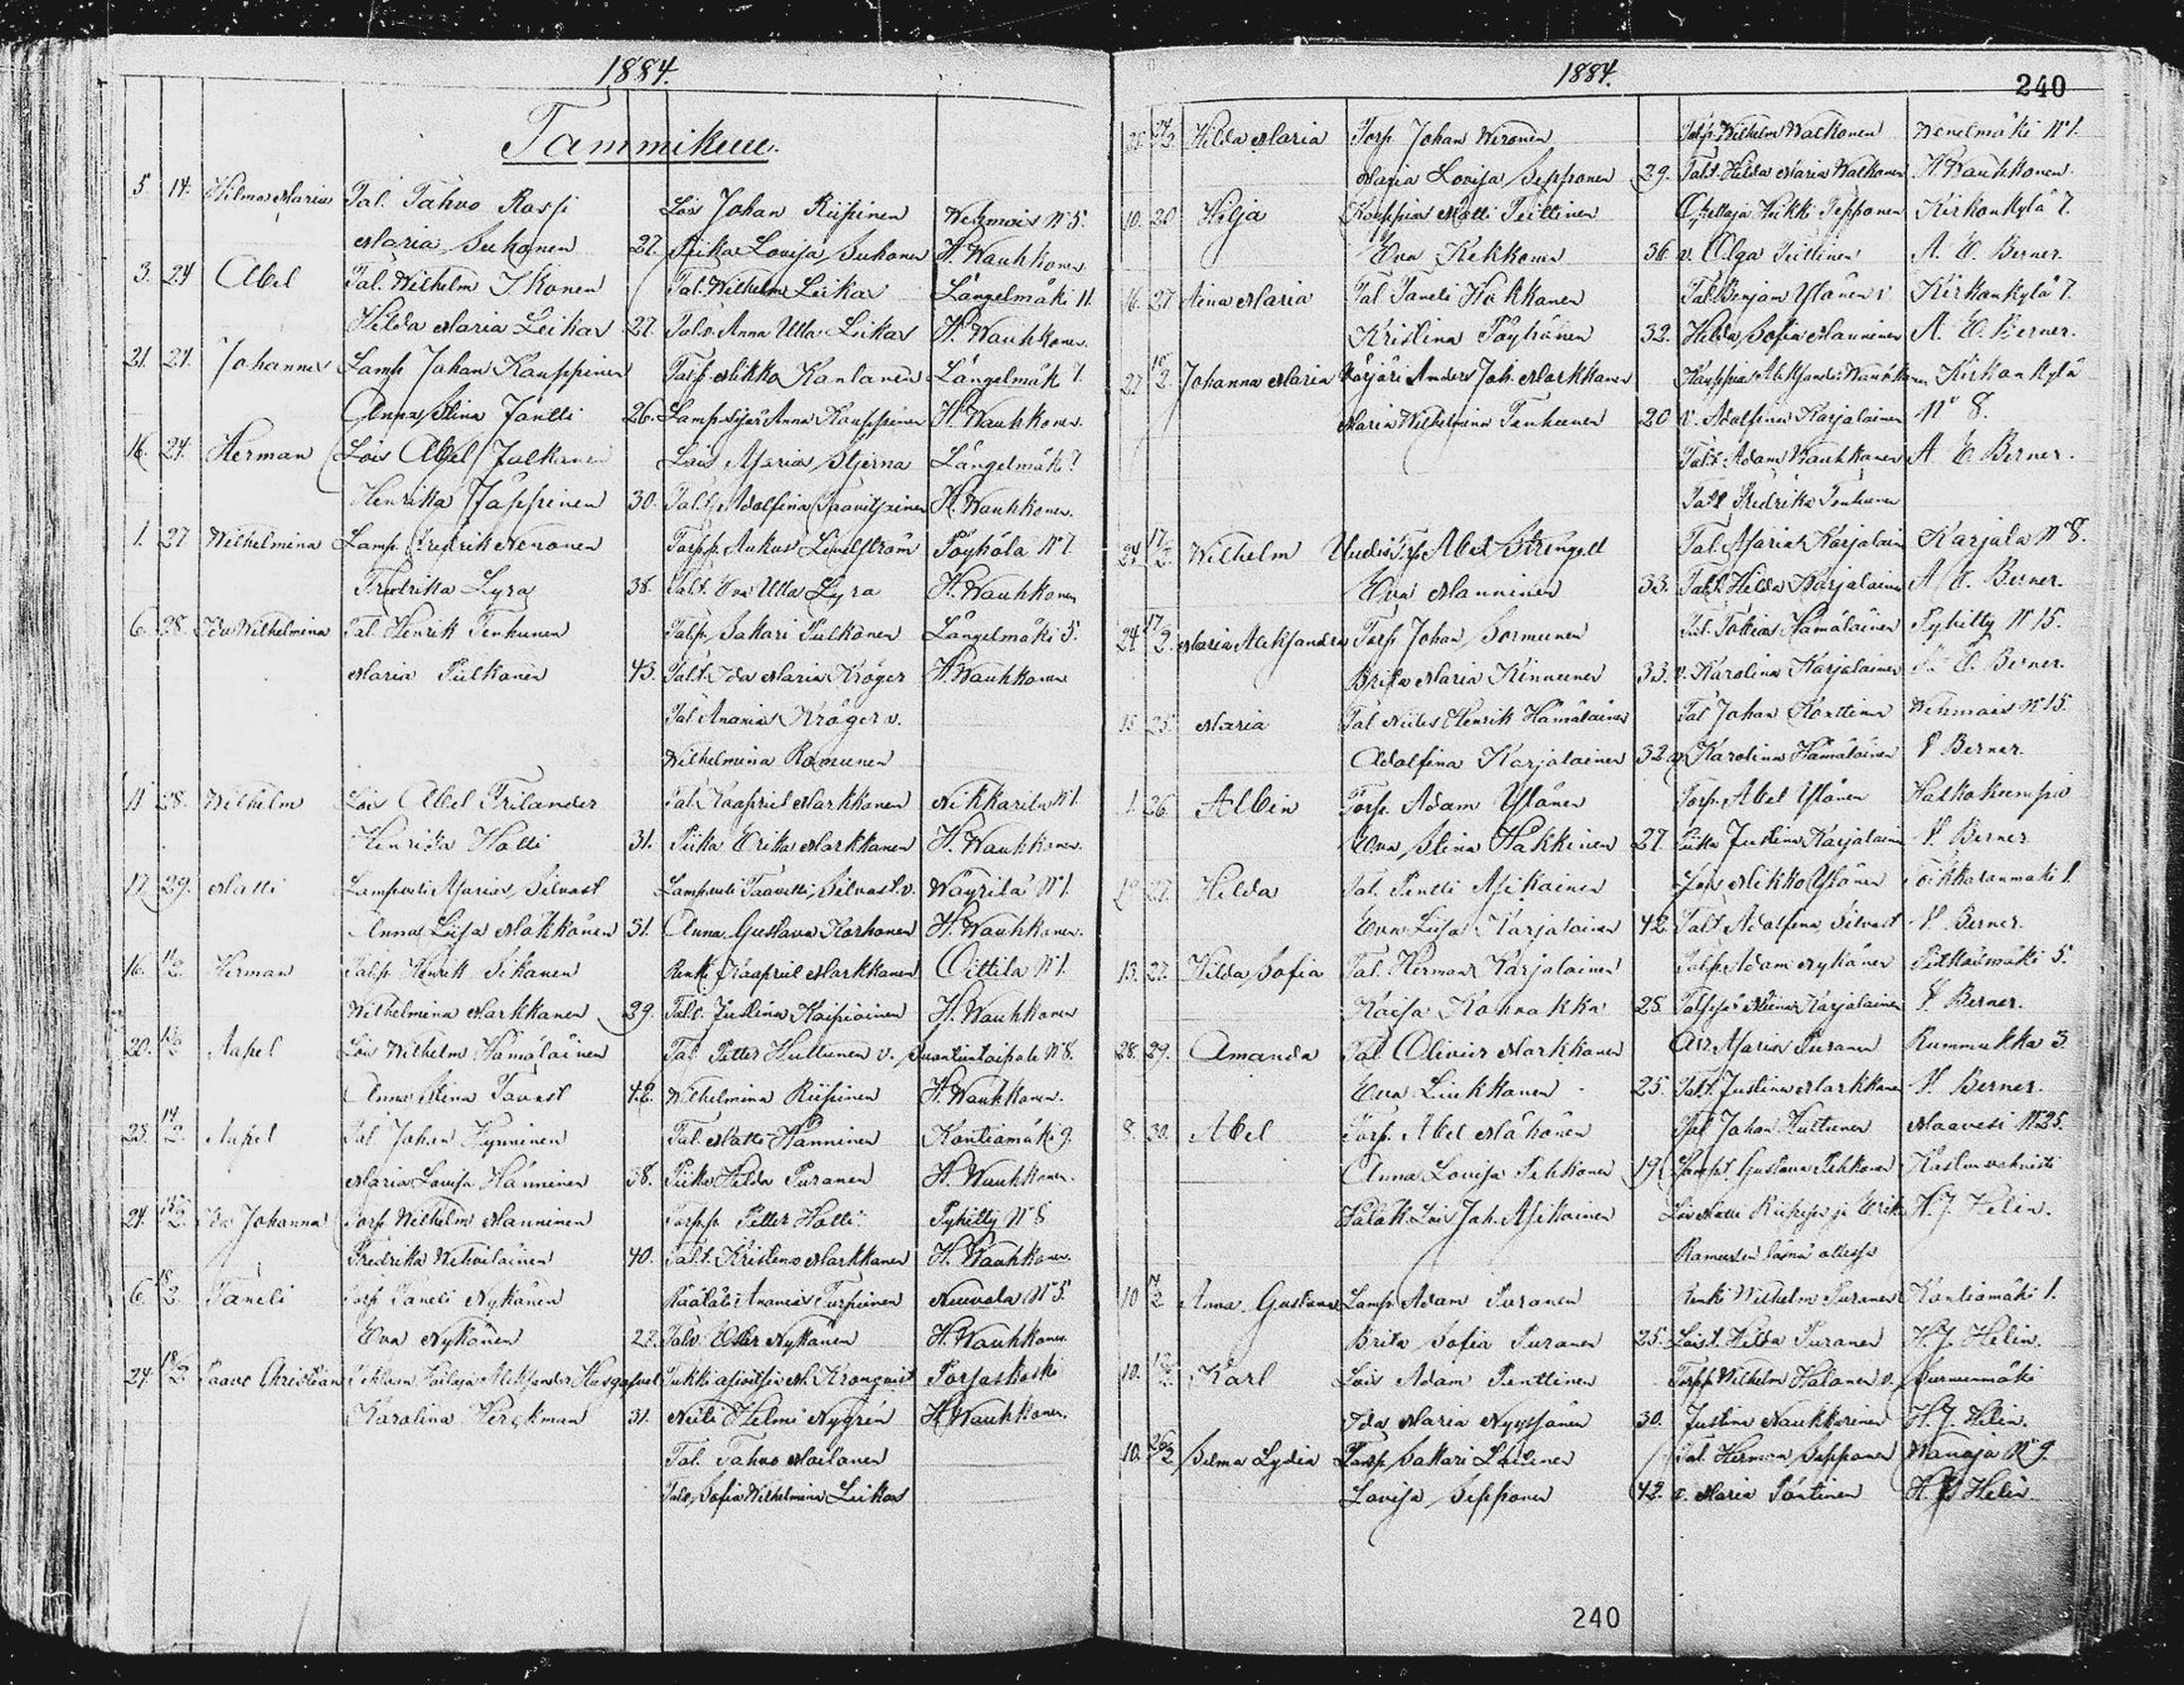 1884.
Tammikuu.
5 14. Hilma Maria Tal. Tahvo Rossi Lois Johan Riipinen Wehmais N:o 5.
Maria Suhonen 27. Piika Lovisa Suhonen H. Wauhkonen
3. 24 Abel Tal. Wilhelm Ikonen Tal. Wilhelm Leikas Längelmäki 11.
Hilda Maria Leikas 27. Talv. Anna Ulla Leikas H. Wauhkonen.
21. 27. Johannes Lamp Johan Kauppinen Talp. Mikko Kanlanen Längelmäk 7.
Anna Stina Jäntti 26. Lamp. Anna Kauppinen H. Wauhkonen.
16. 27. Herman Lois Abel Jalkanen Lois Asarias Stjerna Längelmäki 7
Henrika Jäppinen 30. Tal. t. Adolfina Taavitsainen H. Wauhkonen.
1. 27 Wilhelmina Lamp. Fredrik Neronen Torpp. Aukus Lindström Pöyhölä N:o 7.
Fredrika Lyra 38. Tal.t. Eva Ulla Lyra H. Wauhkonen
6. 28. Ida Wilhelmina Tal. Henrik Tenhunen Talp. Sakari Pulkonen Längelmäki 5.
Maria Pulkonen 43. Tal.t. Ida Maria Kröger H. Wauhkonen
Tal Ananias Kröger v.
Wilhelmina Romunen
11 28. Wilhelm Lois Abel Frilander Tal. Kaapriel Markkanen Nikkarila N:o 1.
Henrika Halli 31. Piika Erika Markkanen H. Wauhkonen.
17. 29. Matti Lampuoti Asarias Silvast Lampuoti Taavetti Silvast v. Wäyrilä N:o 1.
Anna Liisa Makkonen 31. Anna Gustava Korhonen H. Wauhkonen.
16. 11/2. Herman Talp. Henrik Sikanen Renki Kaapriel Markkanen Oittila N:o 1.
Wilhelmina Markkanen 29. Tal.t. Justina Kaipiainen H. Wauhkonen
20. Aapel Lois Wilhelm Hämäläinen Tal Petter Huttunen v. Suontientaipale N:o 8.
Anna Stina Tavast 42. Wilhelmina Riipinen H. Wauhkonen.
23. 14/2. Aapel Tal. Johan Hynninen Tal. Matti Hänninen Kontiomäki 9.
Maria Lovisa Hänninen 38. Piika Hilda Puranen H. Wauhkonen.
24. Ida Johanna Torp. Wilhelm Manninen Torpp. Petter Halli Pyhitty N:o 8
Fredrika Wihavainen 40. Tal.t. Kristina Markkanen H. Wauhkonen.
6. 18/2. Taneli Torp Taneli Nykänen Räätäli Ananias Turpeinen Neuvola N:o 5.
Eva Nykänen 22. Talv. Ester Nykänen H. Wauhkonen
24. 18/2 Paavo Christian Aleksander Husgafvel Tukkiasioitsia Kronqvist Porsaskoski
Karolina Herckman 31. Neiti Helmi Nygrén H. Wauhkonen.
Tal. Tahvo Moilanen
Talv. Sofia Wilhelmina Leikas
1884.
240
25 Hilda Maria Torp. Johan Wironen Talp. Wilhelm Walkonen Wenelmäki N:o 1.
Maria Lovisa Sepponen 29. Tal.t. Hilda Maria Walkonen H. Wauhkonen.
10. 20 Hilja Kauppias Matti Teittinen Opettaja Heikki Sepponen Kirkonkylä 7.
Eva Kekkonen 36. v. Olga Teittinen A. E. Berner.
16. 27 Aina Maria Tal Taneli Hakkanen Tal. Benjam Ylönen v. Kirkonkylä 7.
Kristina Pöyhönen 32. Hilda Sofia Manninen A. E. Berner.
27. 15/2. Johanna Maria Värjäri Anders Joh. Markkanen Kauppias Aleksander Wauhkonen Kirkonkylä
Maria Wilhelmina Tenhunen 20 v. Adolfina Karjalainen N:o 8.
Tal. t. Adam Wauhkonen A. E. Berner.
Tal.t. Fredrika Tenhunen
24. 17/2. Wilhelm Uudist. Abel Strengell Tal. Asarias Karjalain Karjala N:o 8.
Eva Manninen 33. Tal.t. Hilda Karjalainen A E. Berner.
24. 17/2. Maria Aleksandra Torp Johan Sormunen Tal. Tobias Hämäläinen Pyhitty N:o 15.
Brita Maria Kinnunen 33. v. Karolina Karjalainen A. E. Berner.
15 25. Maria Tal Niilis Henrik Hämäläinen Tal Johan Kontinen Wehmais N:o 15.
Adolfina Karjalainen 32. v. Karolina Hämäläinen V. Berner.
1. 26 Albin Torp. Adam Ylönen Torp. Abel Ylönen Halkokumpu
Eva Stina Häkkinen 27. Piika Justina Karjalain V. Berner
27. Hilda Tal. Pentti Asikainen Lois Mikko Ylönen
Eva Liisa Karjalainen 42. Tal.t. Adolfina Silvast V. Berner.
13. 27. Hilda Sofia Tal. Herman Karjalainen Talp. Adam Nykänen Pitkälmäki 5.
Kaisa Kohvakka 25. Stiina Karjalainen V. Berner.
28. 29. Amanda Tal. Olivier Markkanen Arr. Asarias Puranen Rummukka 3.
Eva Liukkonen 25. Tal.t. Justina Markkanen V. Berner.
8. 30. Abel Torp. Abel Mähönen Tal Johan Huttunen Maavesi N:o 25.
Anna Lovisa Pehkonen 19. Lamp.t. Gustava Pehkonen Kastu vahvisti
Lois Joh. Asikainen Lois Matti Riipinen ja Erik H. J. Helin.
Ramusen läsnä ollessa
10 7/2 Anna Gustava Lamp Adam Puranen Renki Wilhelm Puranen Kontiomäki 1.
Brita Sofia Puranen 25. Lois.t. Hilda Puranen H. J. Helin.
10. Karl Lois Adam Penttinen Torpp Wilhelm Halonen v. Surnunmäki
Ida Maria Nyyssönen 30. Justina Naukkarinen H. J. Helin.
10. 26/2 Selma Lydia Torp Sakari Tal. Herman Sepponen Wanaja N:o 9.
Lovisa Sepponen 42. v. Maria Pöntinen H. J. Helin
240